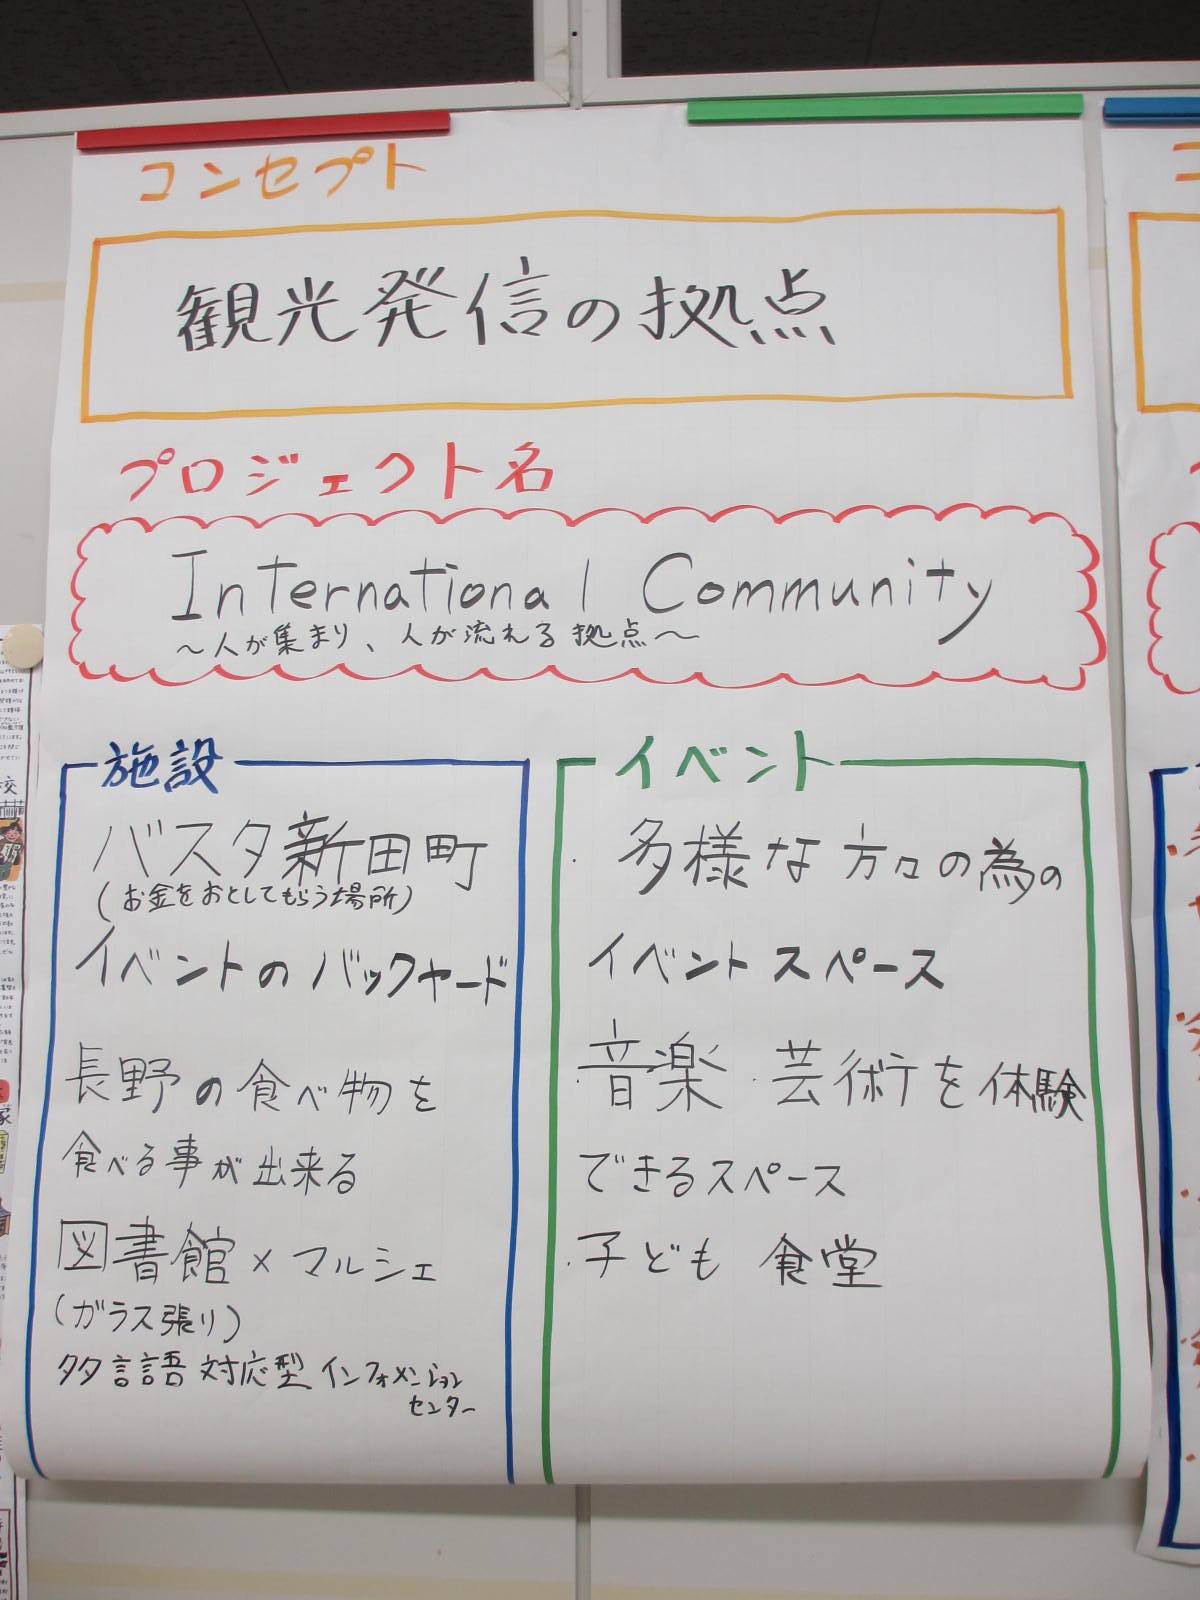 コンセプト
観光発信の拠点
プロジェクト名
International Community
～人が集まり、人が流れる拠点～
施設
バスタ新田町
(お金をおとしてもらう場所)
イベントのバックヤード
長野の食べ物を
食べる事が出来る
図書館×マルシェ
(ガラス張り)
多言語対応型インフォメンション
センター
イベント
・多様な方々の為の
イベントスペース
・音楽・芸術を体験
できるスペース
・子ども食堂